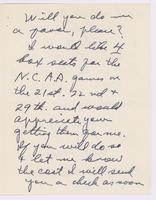 Will you do me
a favor, please?
I would like 4
box seats for the
N.C.A.A. games on
the 21st. 22nd &
29th. and would
appreciate your
getting them for me.
If you will do so
& let me know
the cost I will send
you a check as soon